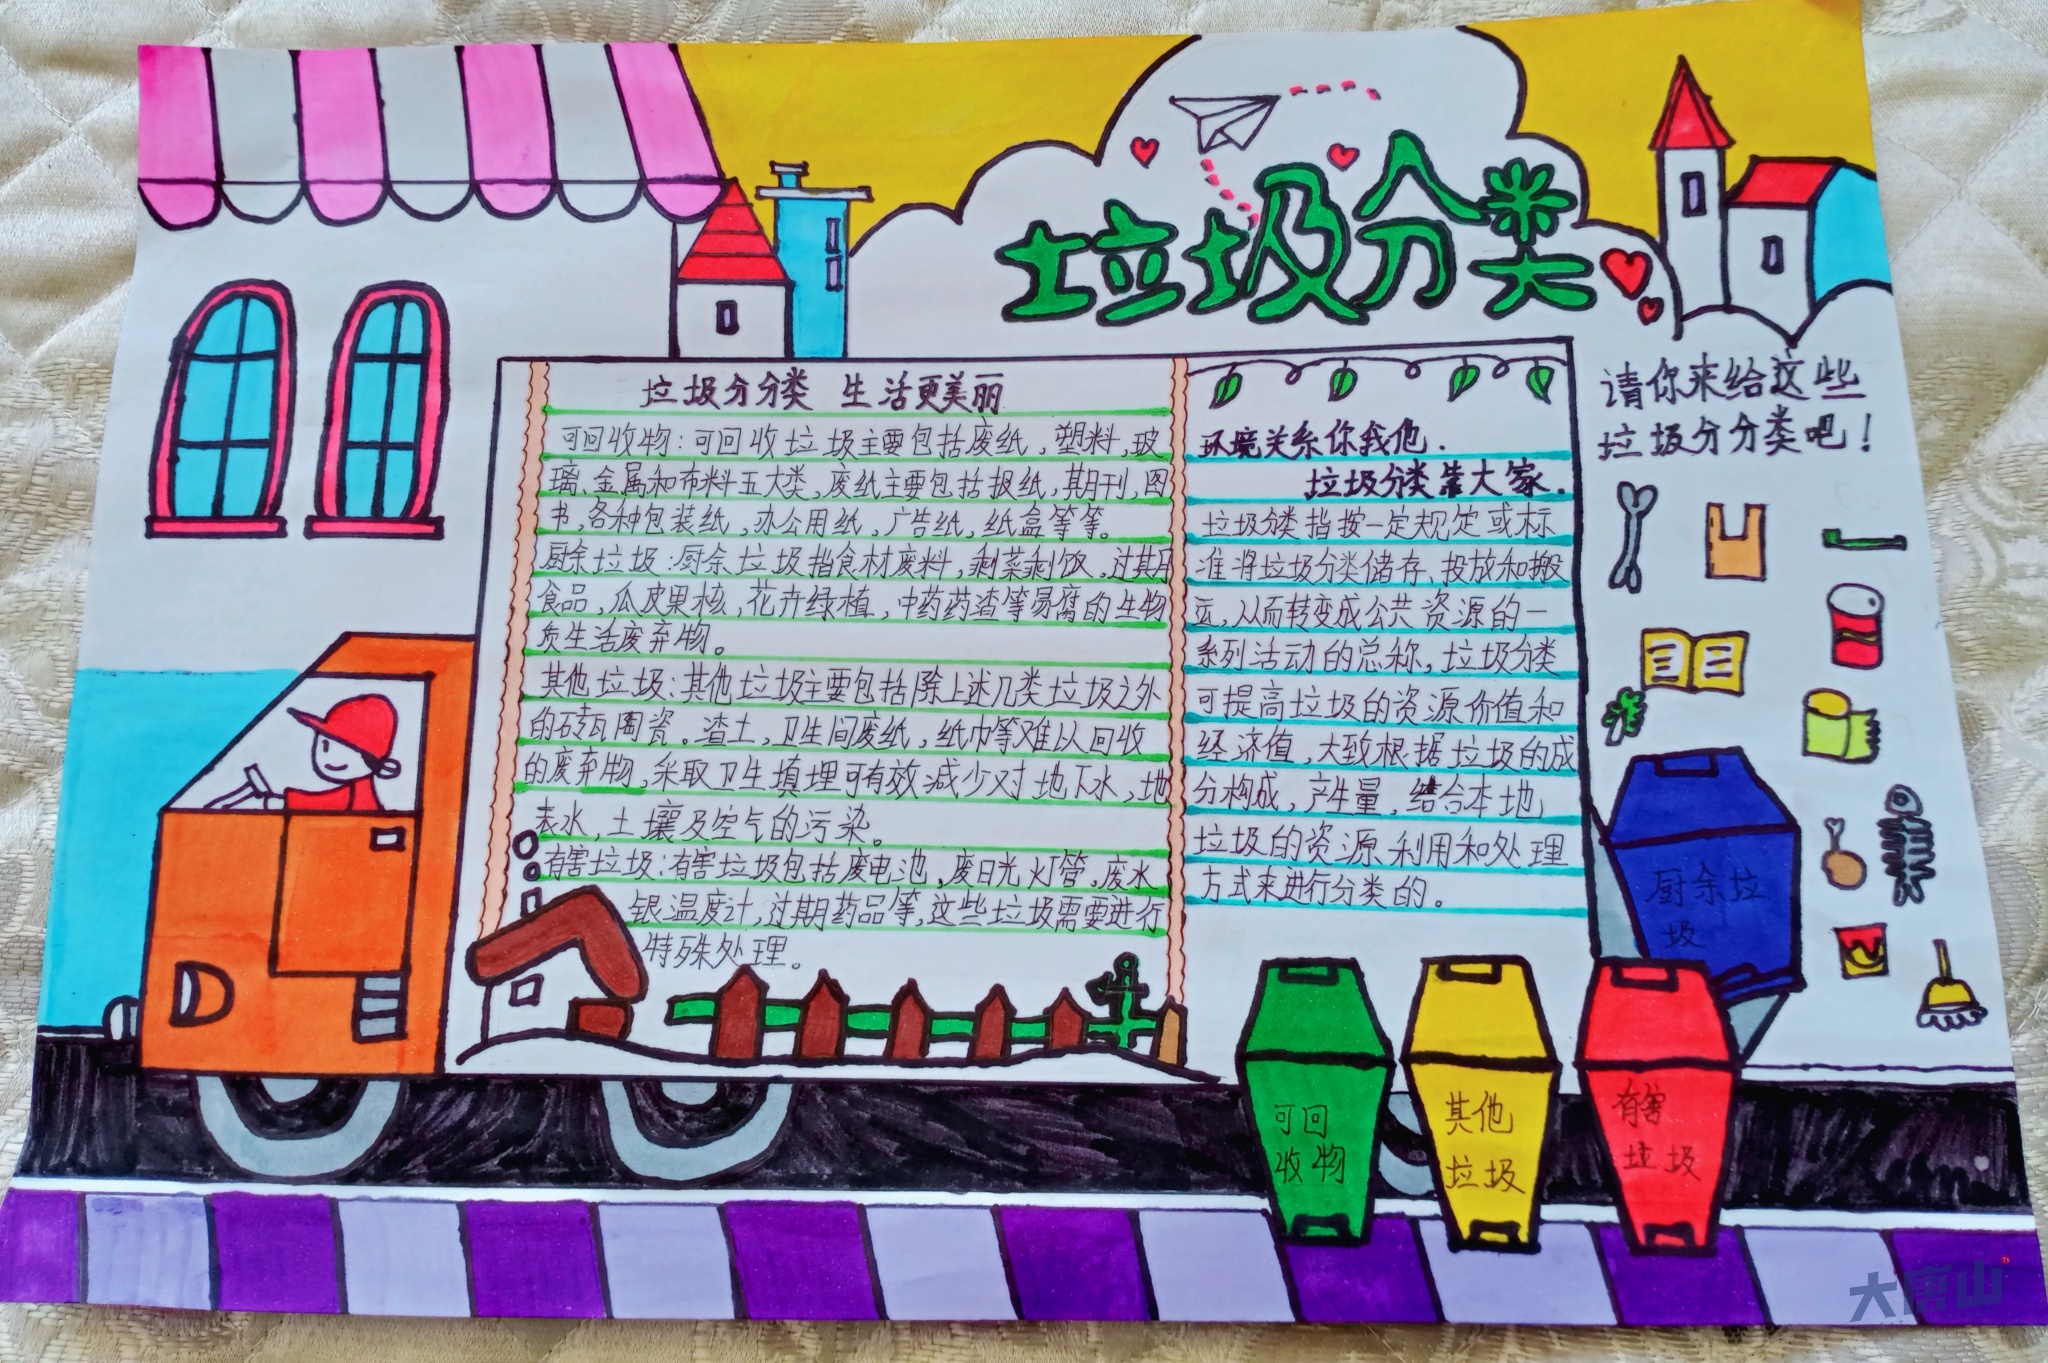 垃圾分类
垃圾分分类 生活更美丽
可回收物:可回收垃圾主要包括废纸,塑料,玻
璃、金属和布料五大类,废纸主要包括报纸,期刊,图
书,各种包装纸,办公用纸,广告纸,纸盒等等。
厨余垃圾:厨余垃圾指食材废料,剩菜剩饭,过期
食品,瓜皮果核,花卉绿植,中药药渣等易腐的生物
质生活废弃物。
其他垃圾:其他垃圾主要包括除上述几类垃圾之外
的砖瓦陶瓷。渣土,卫生间废纸,纸巾等难以回收
的废弃物,采取卫生填埋可有效减少对地下水,地
表水,土壤及空气的污染。
有害垃圾:有害垃圾包括废电池,废日光灯管,废水
银温度计,过期药品等,这些垃圾需要进行
特殊处理。
环境关系你我他.
垃圾分类靠大家.
垃圾分类指按一定规定或标
准将垃圾分类储存、投放和搬
运,从而转变成公共资源的一
系列活动的总称,垃圾分类
可提高垃圾的资源价值和
经济值,大致根据垃圾的成
分构成,产生量,结合本地
垃圾的资源利用和处理
方式来进行分类的。
请你来给这些
垃圾分分类吧!
厨余垃
圾
可回
收物
其他
垃圾
有害
垃圾
大唐山